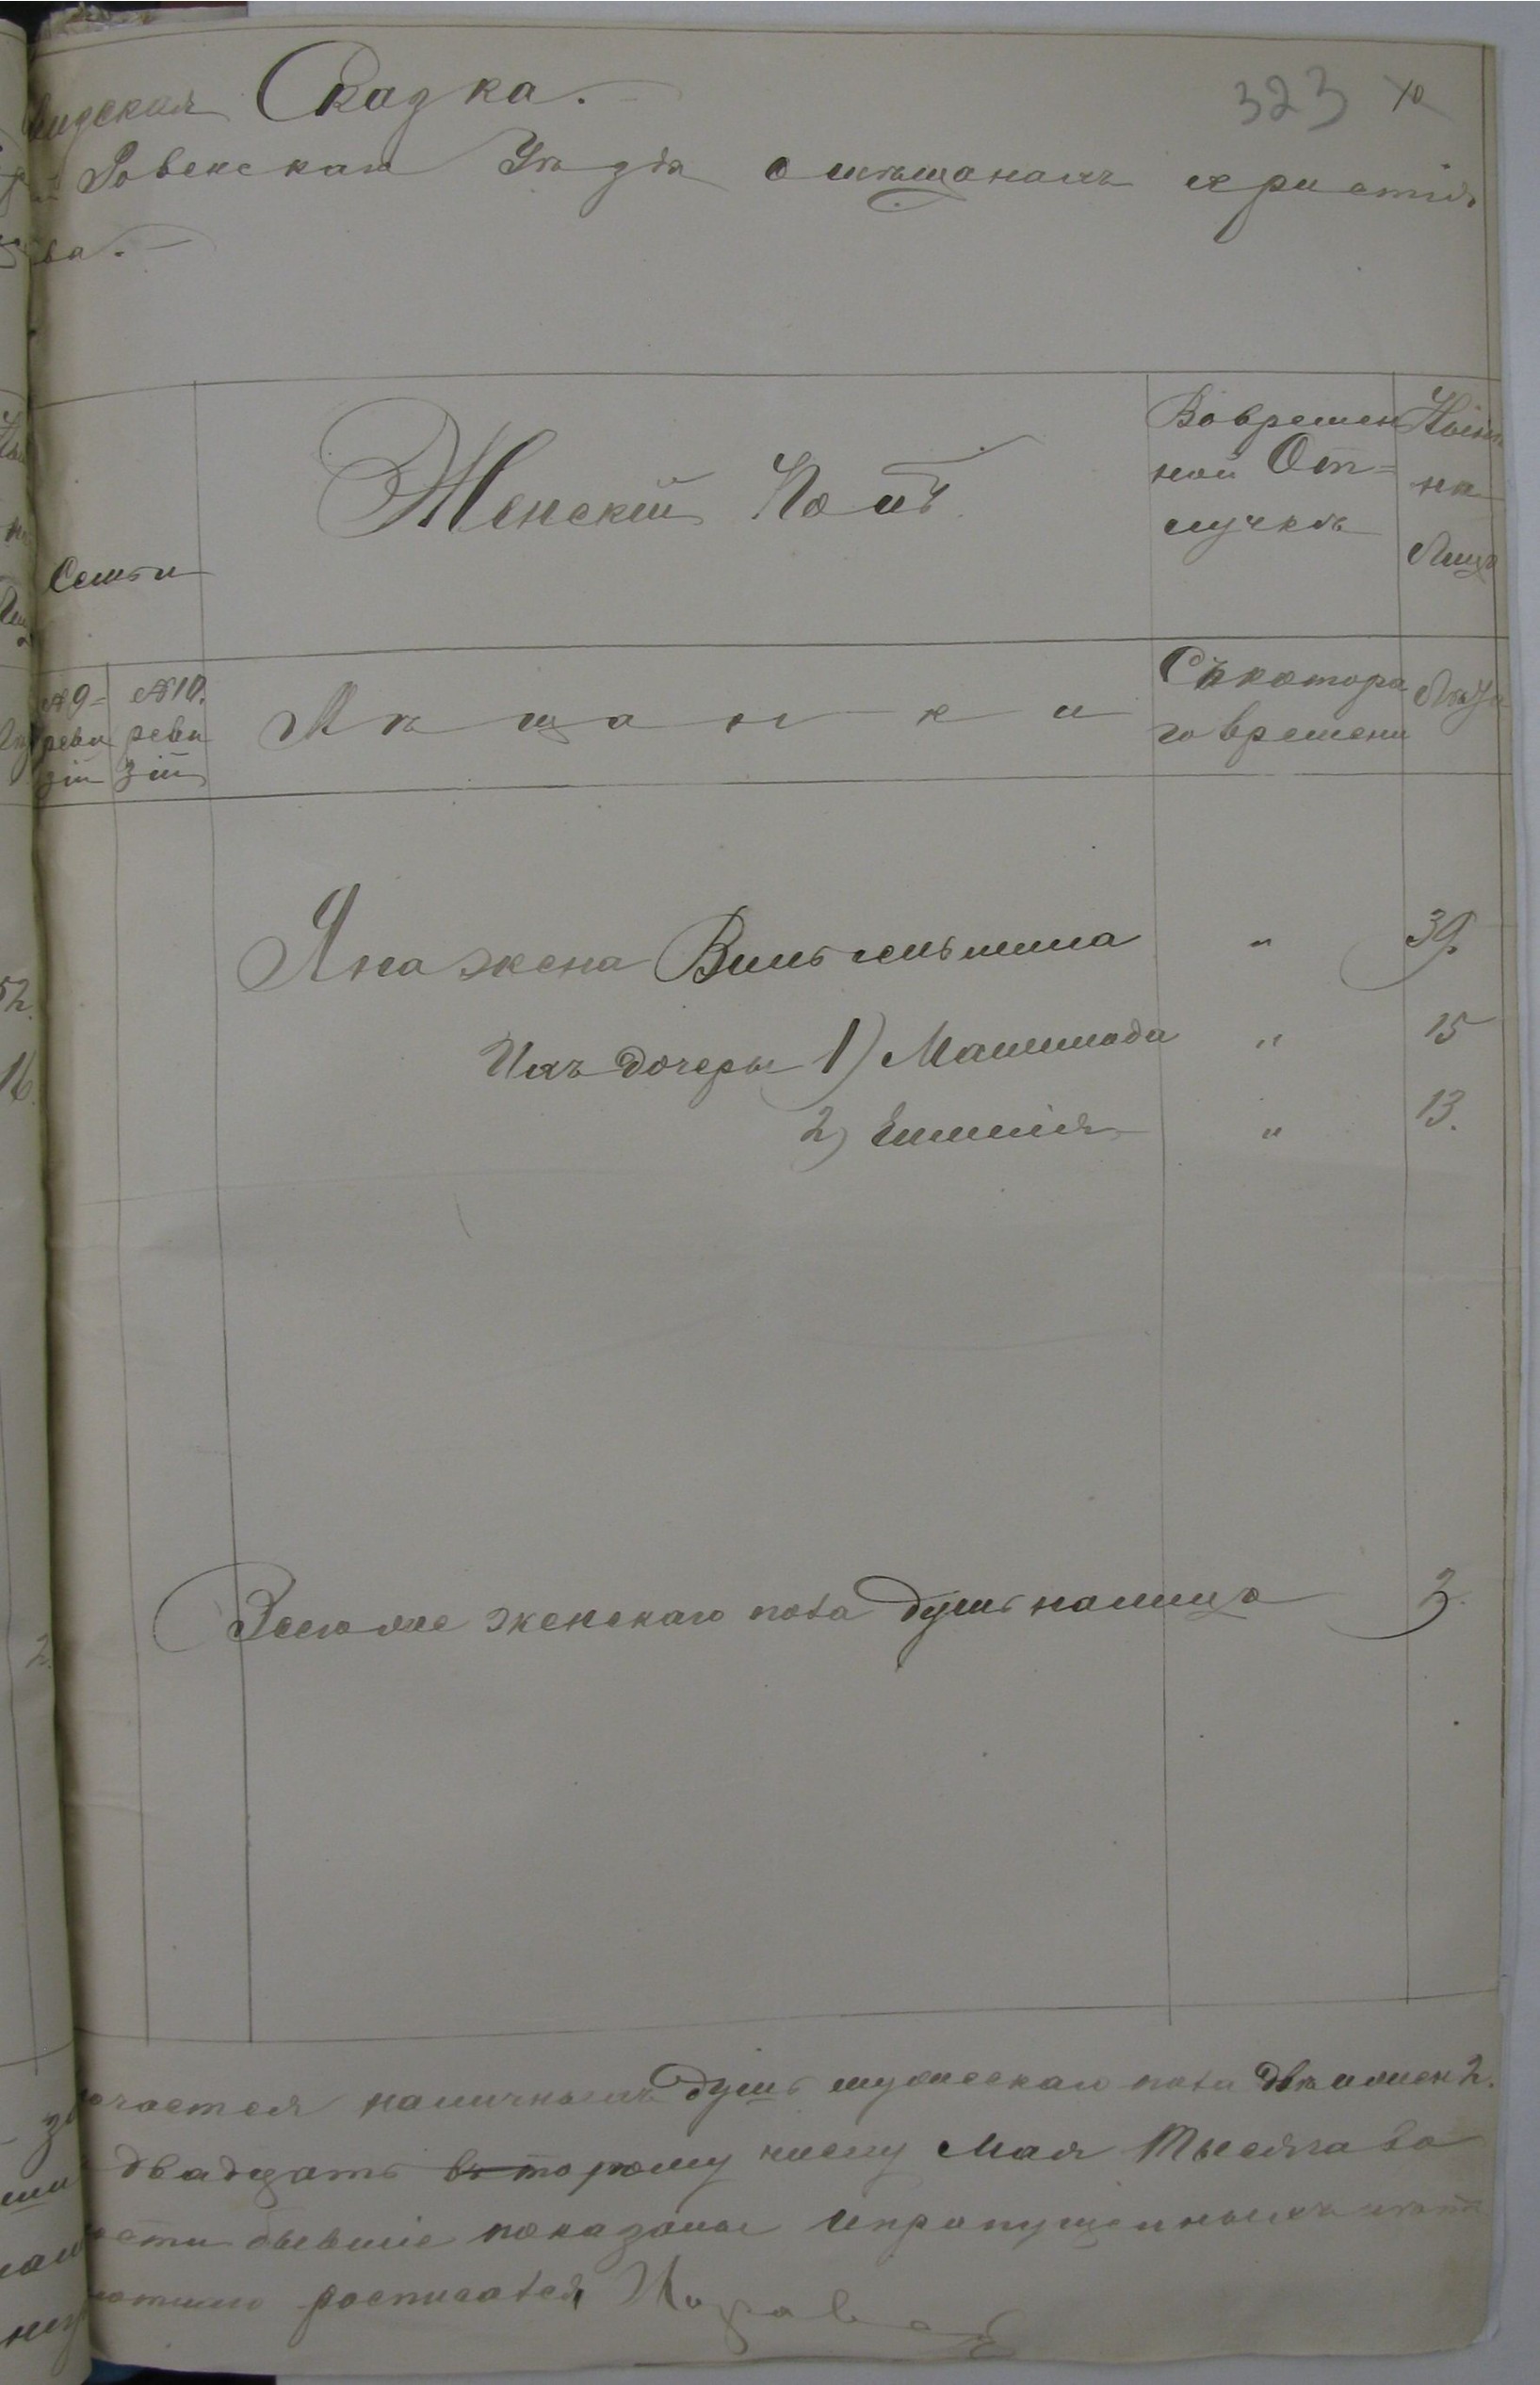 Сказка.
323 10
Ровенскаго Уѣзда о мѣщанахъ христіа
ва.
Семьи
Женскій Полъ
Во времен
ной От=
лучкѣ
Нынѣ
на
Лицо
№ 9=
реви
зіи
№ 10.
реви
зіи
Мѣщанки
Съ котора
го времени
Лѣта
52.
16.
Яна жена Вильгельмина " 39.
Ихъ дочеры 1) Матильда " 15
2) Емилія " 13.
Всего же женскаго пола душъ налицо 3.
2.
наличныхъ душъ мужескаго пола двѣ имен 2.
двадцать второму числу Мая Тысяча во
бывшіе показаны и пропущенныхъ нѣтъ
росписался